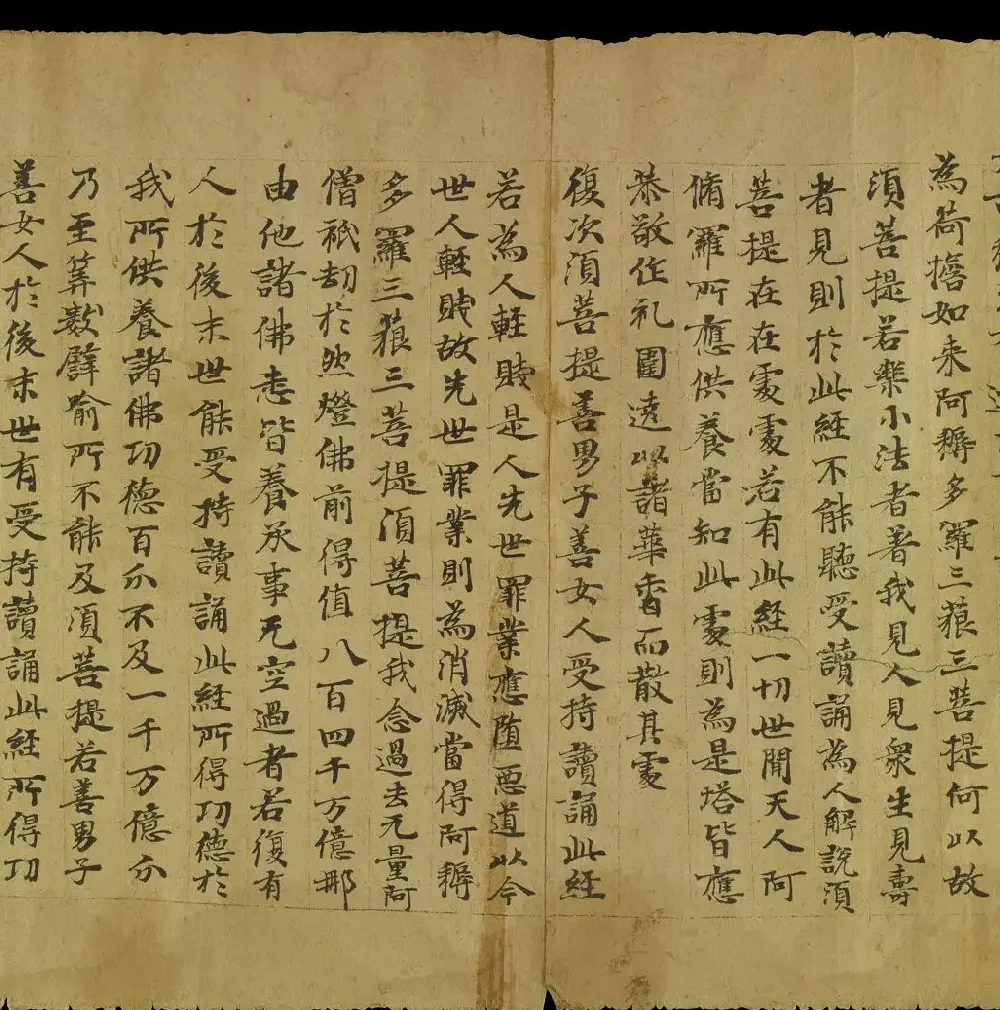 為荷擔如来阿耨多羅三藐三菩提何以故
須菩提若樂小法者著我見人見衆生見壽
者見則於此経不能聽受讀誦為人解說須
菩提在在處處若有此経一切世間天人阿
脩羅所應供養當知此處則為是塔皆應
恭敬作礼圍遶以諸華香而散其處
復次須菩提善男子善女人受持讀誦此経
若為人輕賤是人先世罪業應堕悪道以今
世人輕賤故先世罪業則為消滅當得阿耨
多羅三藐三菩提須菩提我念過去无量阿
僧祇劫於然燈佛前得值八百四千万億那
由他諸佛悉皆養承事无空過者若復有
人於後末世能受持讀誦此経所得功德於
我所供養諸佛功德百分不及一千万億分
乃至筭數譬喻所不能及須菩提若善男子
善女人於後末世有受持讀誦此経所得功